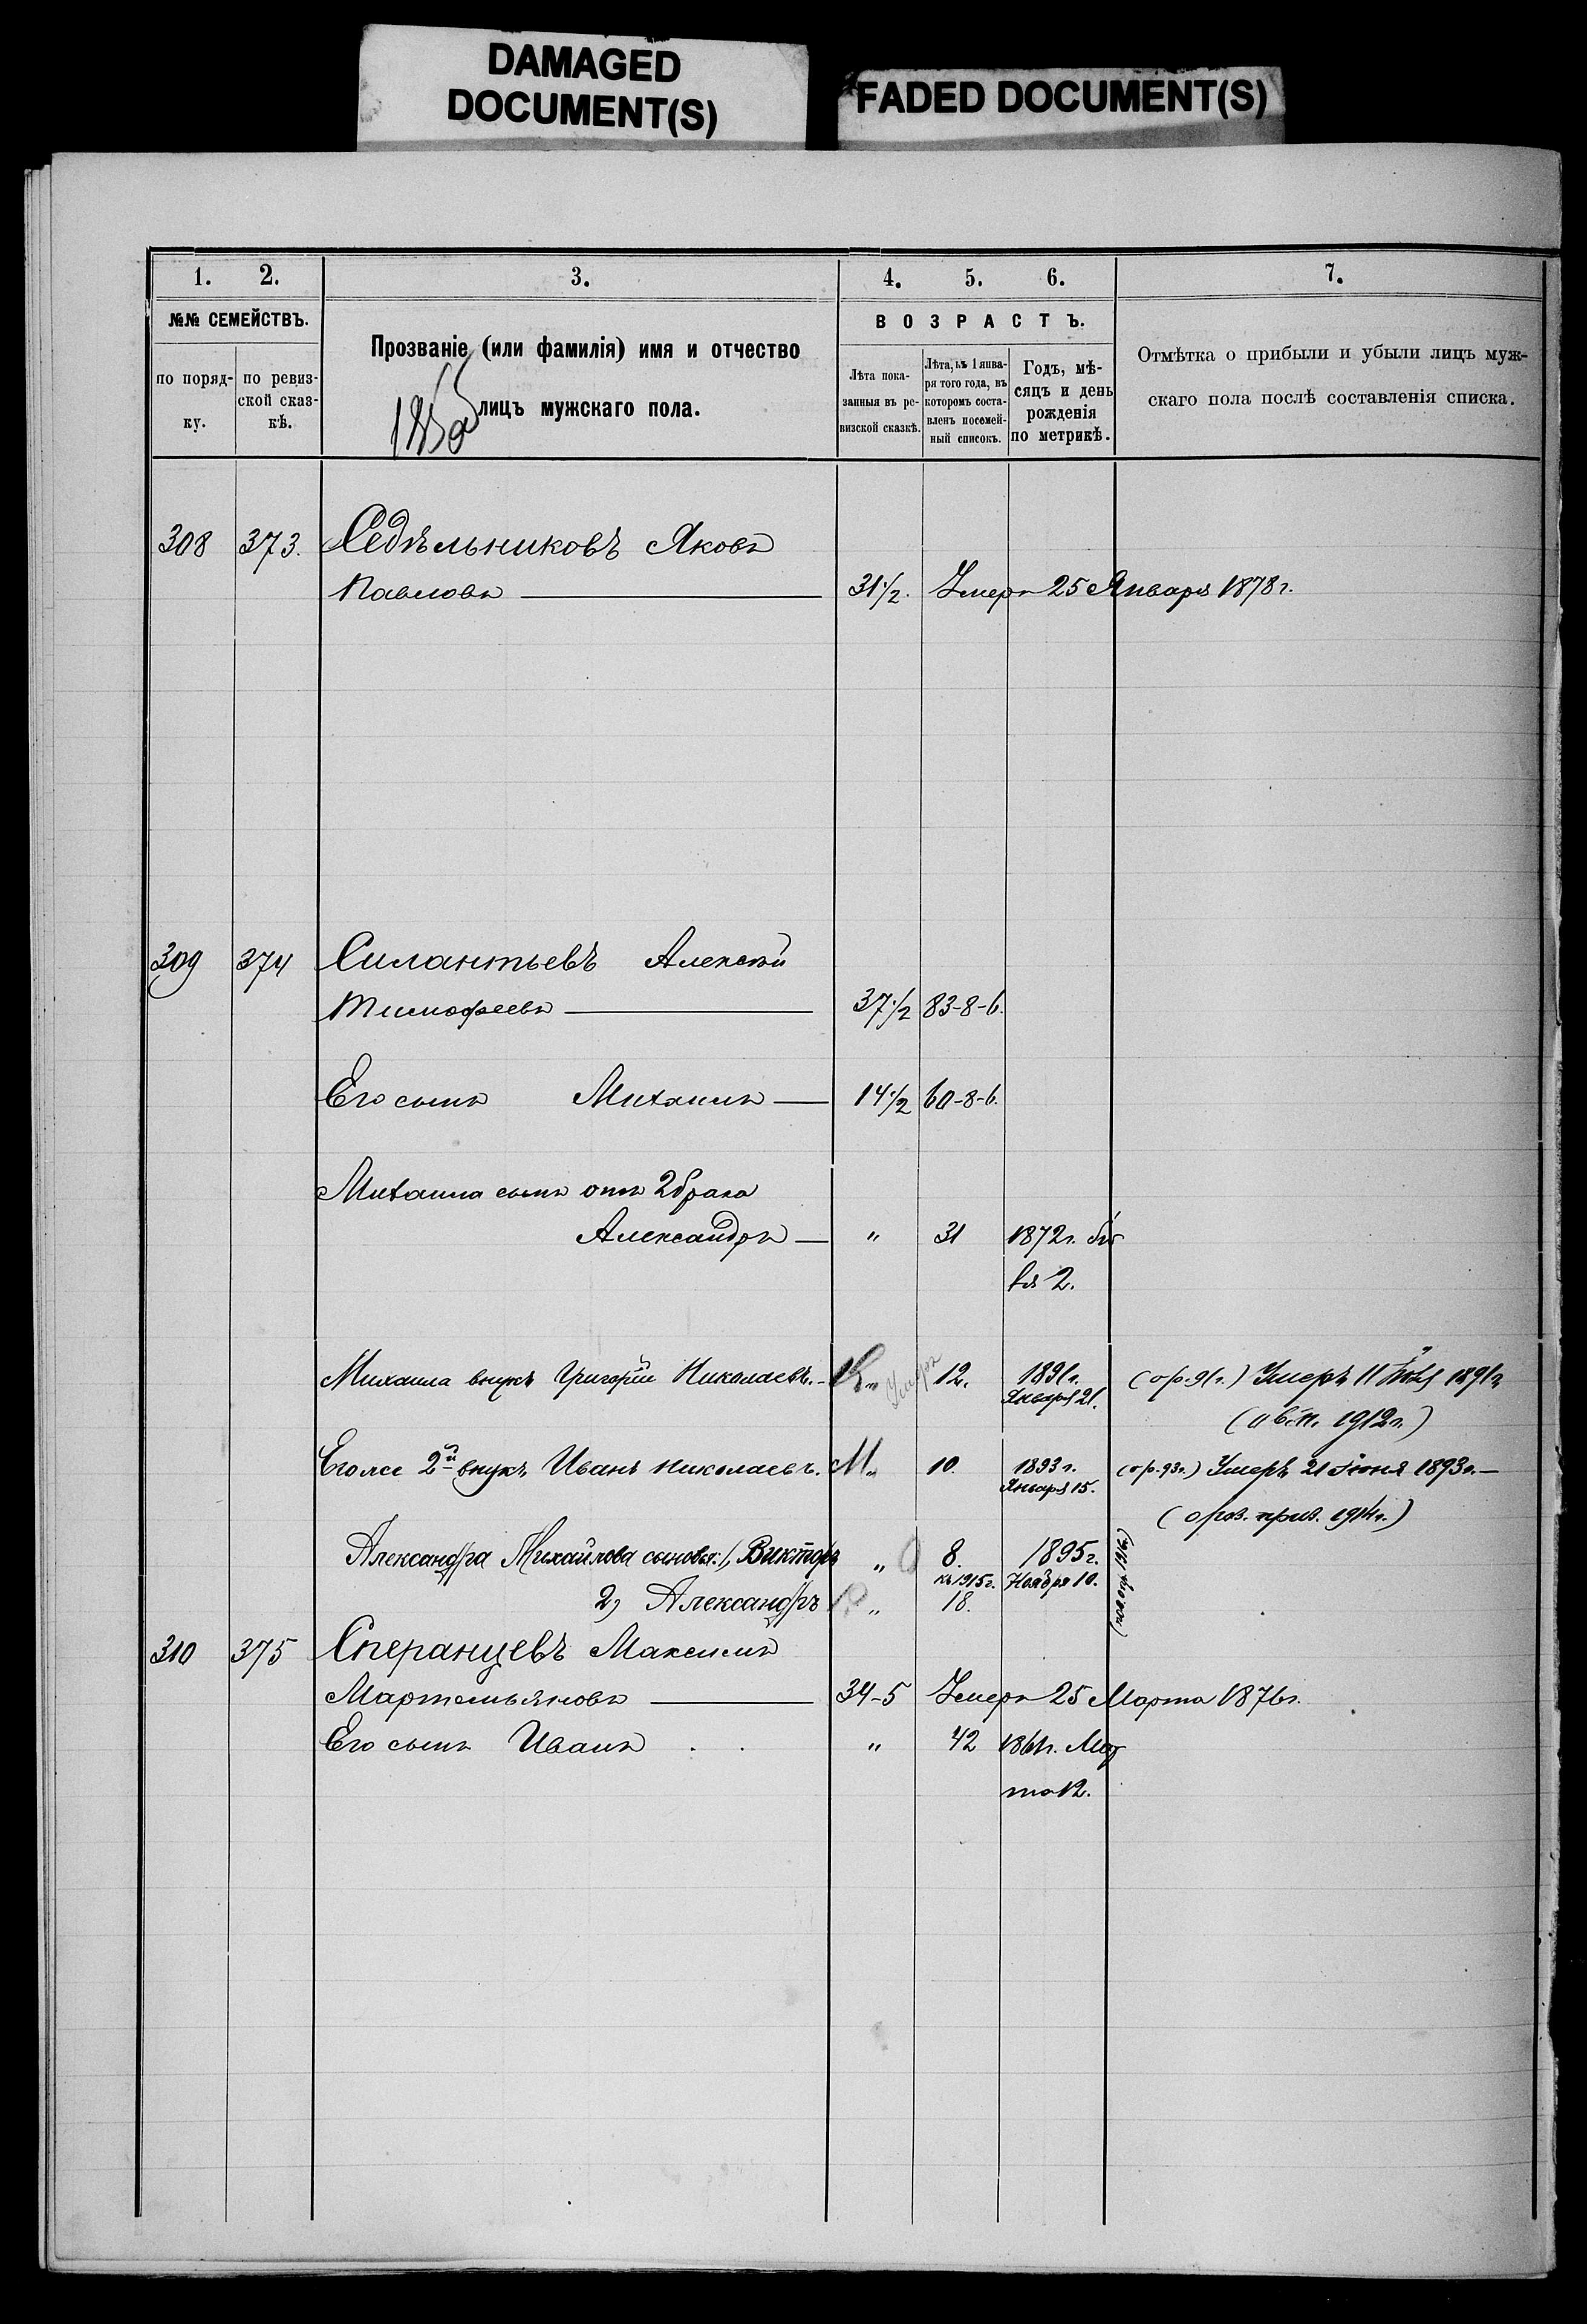 DAMAGED
DOCUMENT(S)
FADED DOCUMENT(S)
1. 2. 3. 4. 5. 6. 7.
№№ СЕМЕЙСТВЪ.
по поряд-
ку.
по ревиз-
ской сказ-
кѣ.
Прозваніе (или фамилія) имя и отчество
лицъ мужскаго пола.
ВОЗРАСТЪ.
Лѣта пока-
занныя въ ре-
визской сказкѣ.
Лѣта, къ 1 янва-
ря того года, въ
которомъ соста-
вленъ посемей-
ный списокъ.
Годъ, мѣ-
сяцъ и день
рожденія
по метрикѣ.
Отмѣтка о прибыли и убыли лицъ муж-
скаго пола послѣ составленія списка.
308 373. Седѣльниковъ Яковъ
Павловъ 31½. Умеръ 25 Января 1878 г.
309 374 Силантьевъ Алексѣй
Тимофеевъ 37½ 83-8-6.
Его сынъ Михаилъ 14½ 60-8-6.
Михаила сынъ отъ 2 брака
Александръ " 31 1872 г.
вя 2.
Михаила внукъ Григорій Николаевъ. 12. 1891 г. (ор. 91 г.) Умеръ 11 1891 г.
Января 21.
( 1912 г.)
Его же 2й внукъ Иванъ Николаевъ. М. 10. 1893 г. (ор. 93 г.) Умеръ 21 Іюня 1893 г.
Января 15.
( приз. 1914 г.)
Александра Михайлова сыновья: 1, Викторъ " 8. 1895 г.
къ 1915 г. Ноября 10.
2) Александръ " 18.
310 375 Сперанцевъ Максимъ
Мартемьяновъ 34-5 Умеръ 25 Марта 1876 г.
Его сынъ Иванъ " 42 1861 г. Мар
та 12.